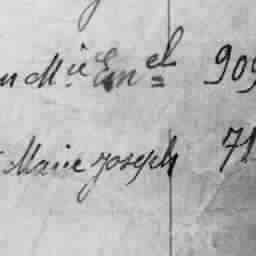 M.ie Em.el 909
Marie joseph 71